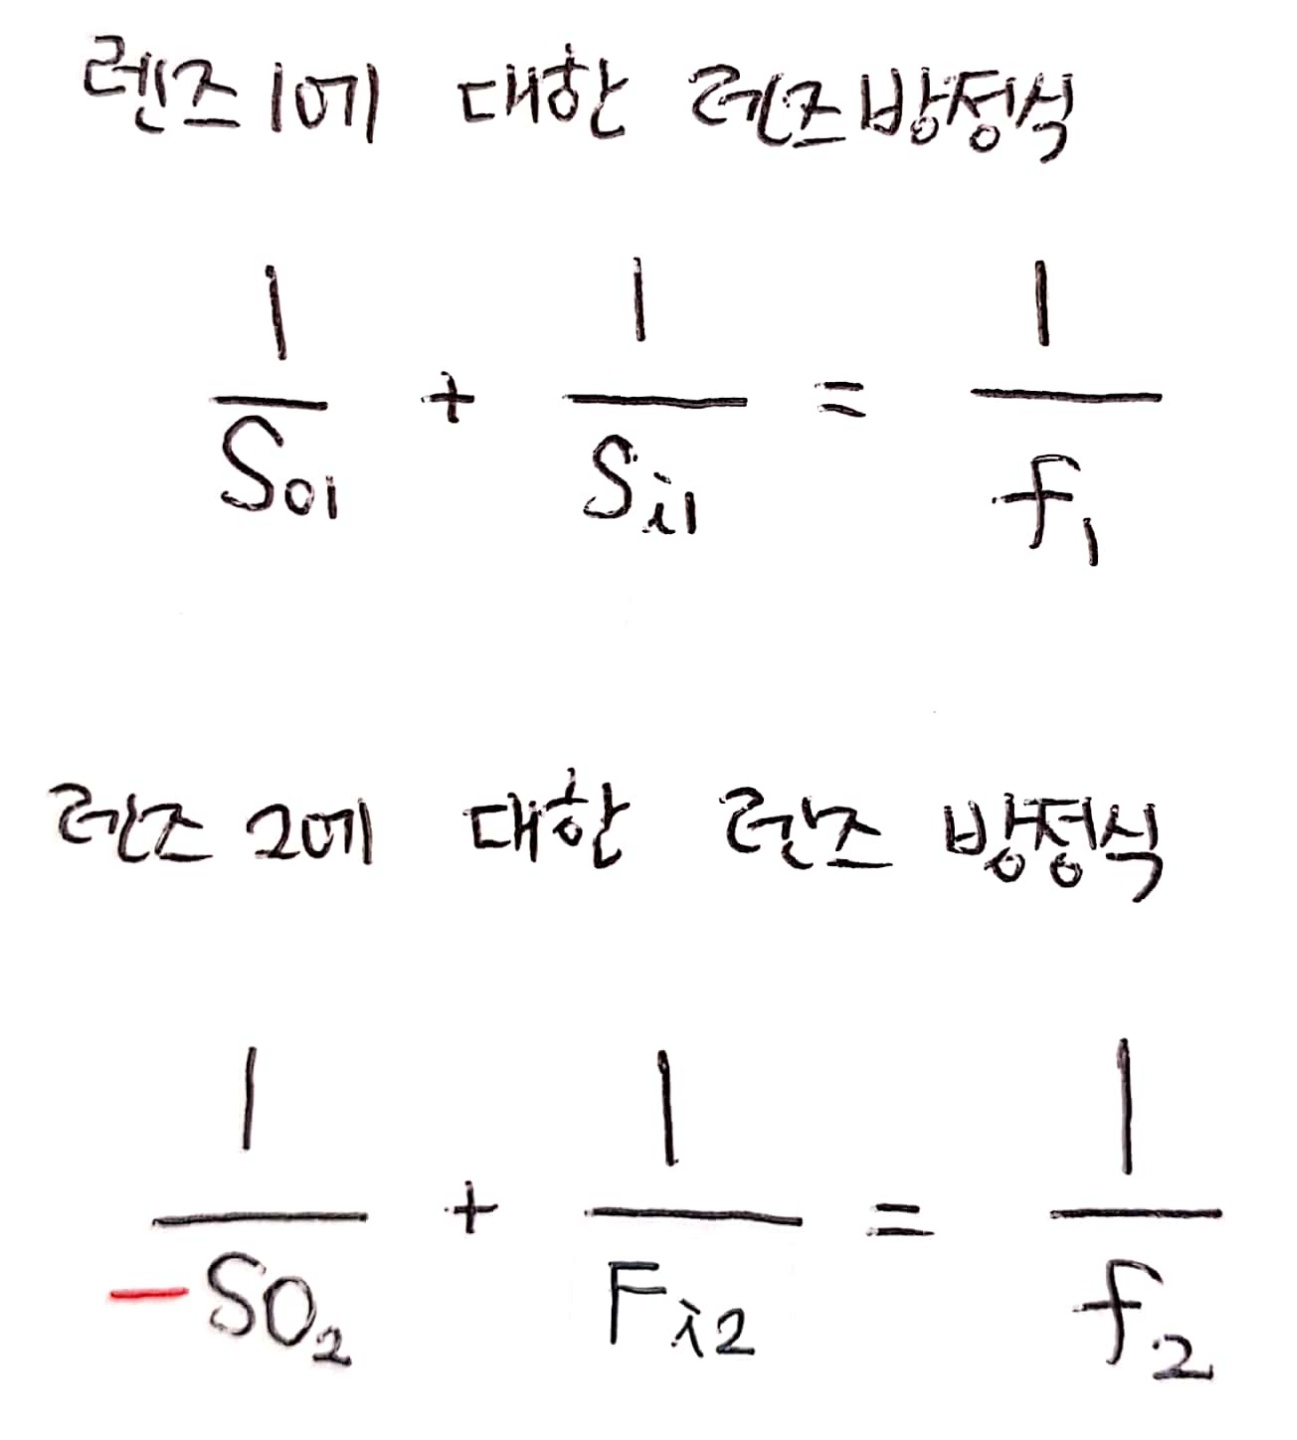 렌즈 1에 대한 렌즈방정식
1/S₀₁ + 1/Sᵢ₁ = 1/f₁
렌즈 2에 대한 렌즈 방정식
1/-SO₂ + 1/Fᵢ₂ = 1/f₂